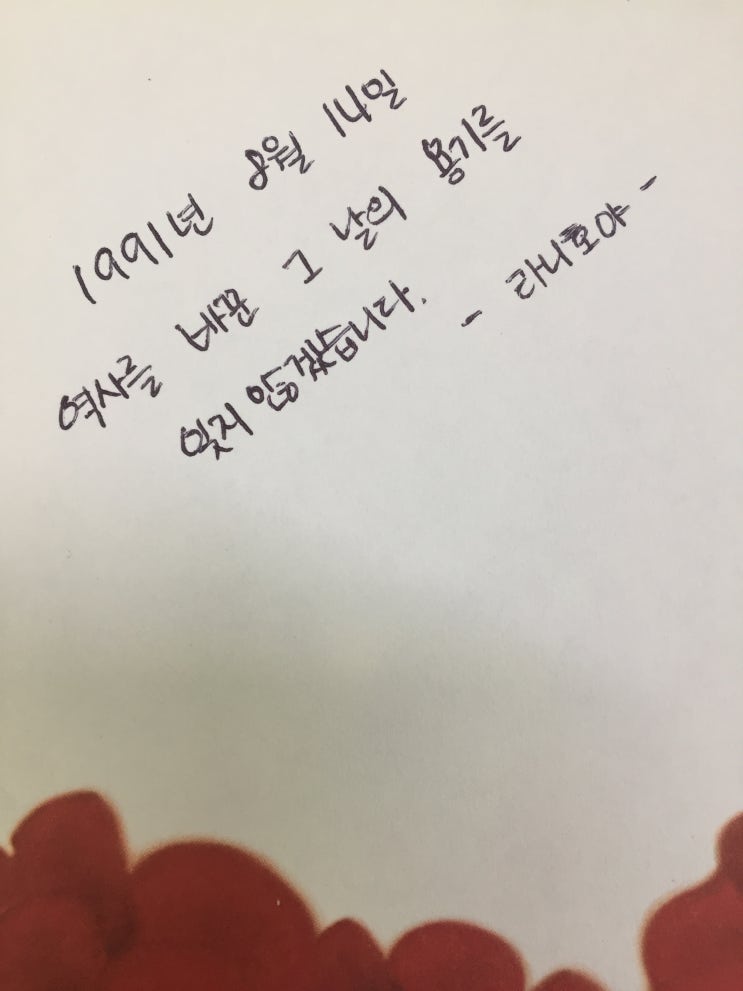 1991년 8월 14일
역사를 바꾼 그 날의 용기를
잊지 않겠습니다.
- 라니호야 -